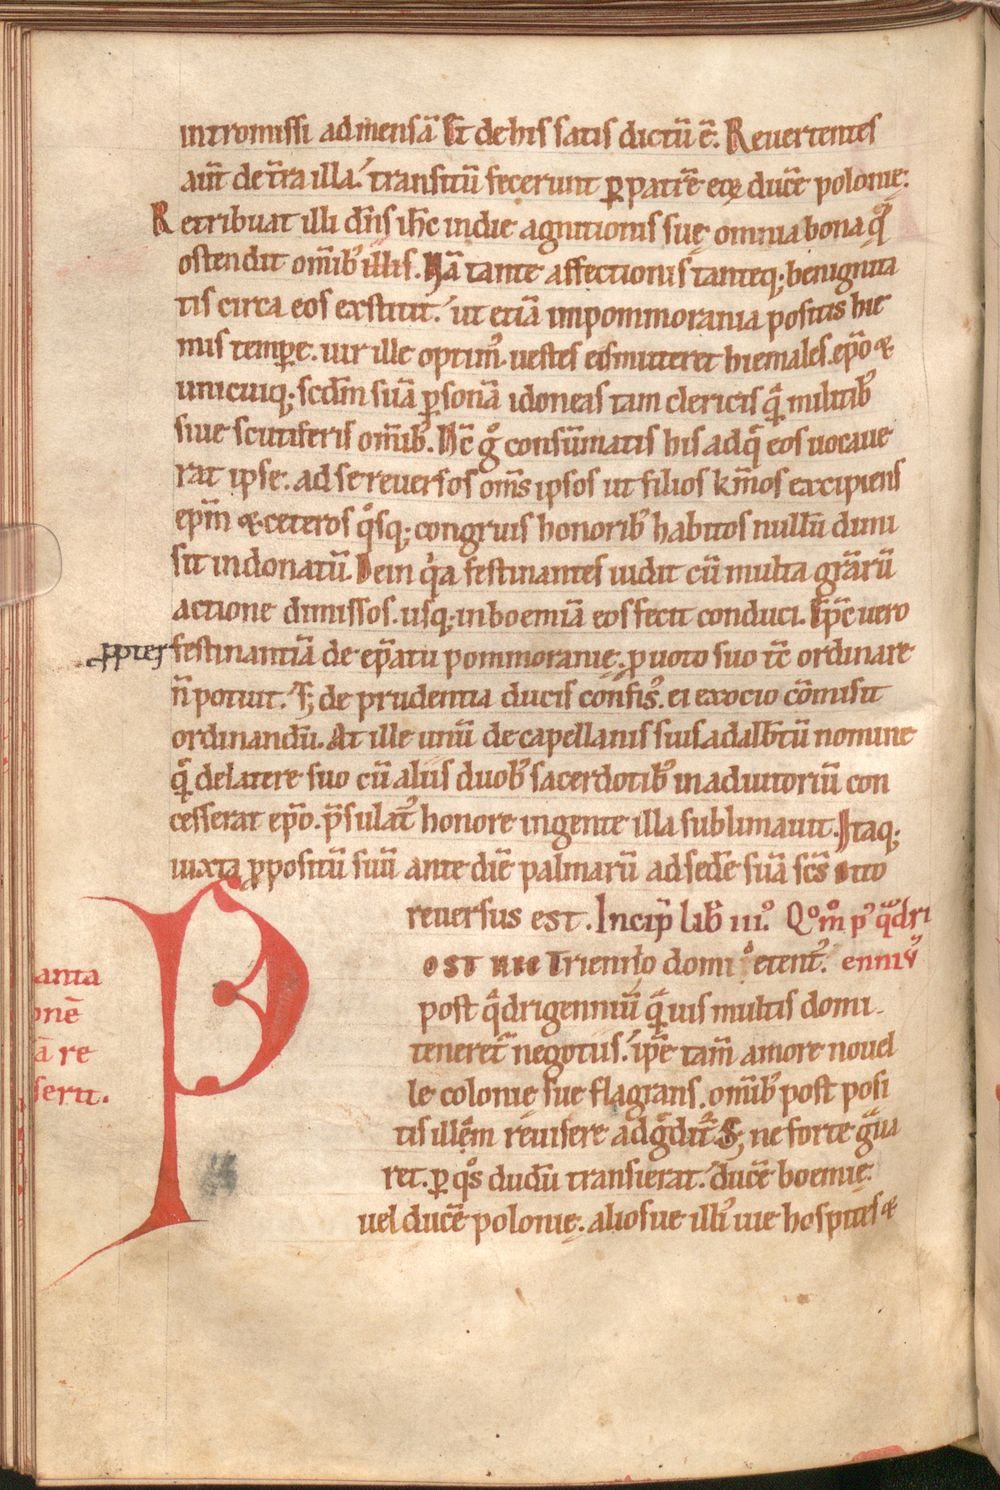 intromissi ad mensā Et de his satis dictū ē. Reuertentes
aut̄ de tr̄a illa. transitū fecerunt ꝑ patrē eoꝝ ducē polonię.
Retribuat illi dn̄s ih̄c in die agnitionis suę omnia bona q̄
ostendit om̄ib᾽ illis. Nā tante affectionis tanteq; benignita
tis circa eos exstitit. ut etiā in pommorania positis hie
mis temꝑe. uir ille optim᾽. uestes eis mitteret hiemales. ep̄o &
unicuiq; scd̄m suā ꝑsonā idoneas tam clericis quā militib᾽
siue scutiferis om̄ib᾽. H̄ g̊ consūmatis his ad q̄ eos uocaue
rat ipse. ad se reuersos om̄s ipsos ut filios km̄os excipiens
ep̄m & ceteros q̊sq; congruis honorib᾽ habitos nullū dimi
sit indonatū. Dein q̓a festinantes uidit cū multa gr̄arū
actione dimissos. usq; in boemiā eos fecit conduci. Ep̄c uero
ꝓpter festinantiā de ep̄atu pommoranię. ꝓ uoto suo tc̄ ordinare
n̄ potuit. S; de prudentia ducis confis᾽. ei ex ocio cōmisit
ordinandū. At ille unū de capellanis suis adalb̄tū nomine
quē de latere suo cū aliis duob᾽ sacerdotib᾽ in adiutoriū con
cesserat ep̄o. p̄sulat᾽ honore in gente illa sublimauit. Itaq;
iuxta ꝓpositū suū ante diē palmarū ad sedē suā sc̄s otto
reuersus est. Incip̄ lib᾽ iii᾽. Qom̊ p᾽ q̄dri
enniū
POST HEC Triennio domi retent᾽.
post q̄drigenniū q̄uis multis domi
teneret᾽ negotiis. ip̄e tam̄ amore nouel
le colonie sue flagrans. om̄ib᾽ post posi
tis illē̄m reuisere adg̊dit᾽. S; ne forte g̊ua
ret. ꝑ q̊s dudū transierat. ducē boemię.
uel ducē polonię. alios ue illi᾽ uie hospites &
anta
onē
ā re
serit.